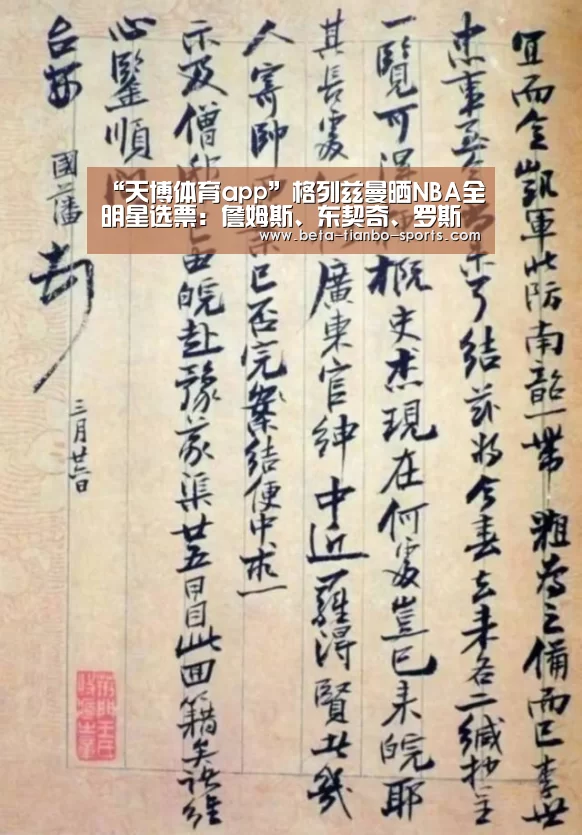 “天博体育app”格列兹曼晒NBA全
明星选票：詹姆斯、东契奇、罗斯
www.beta-tianbo-sports.com
宜而令凱軍此防南韶一带粗為之備而已李世
忠軍了結茲將今春去来各二緘抄呈
一覽可得概史杰現在何處豈已来皖耶
其長處廣東官紳中近羅得賢者幾
人寄帥已否完案結便中求
示及僧邸由皖赴豫蒙渠廿五日回籍矣諸維
心鑒順問
台安 國藩 頓
三月廿二日